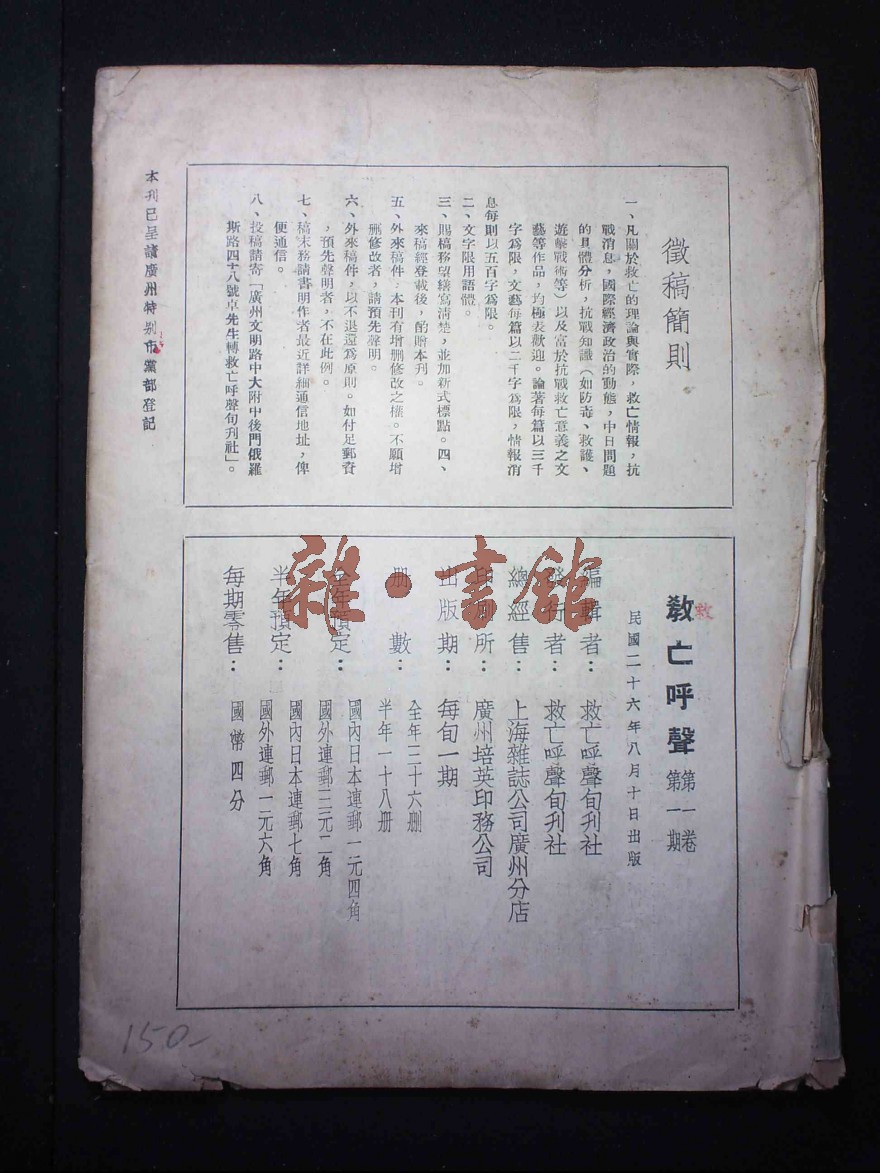 徵稿簡則
一、凡關於救亡的理論與實際，救亡情報，抗
戰消息，國際經濟政治的動態，中日問題
的具體分析，抗戰知識（如防毒、救護、
遊擊戰術等）以及富於抗戰救亡意義之文
藝等作品，均極表歡迎。論著每篇以三千
字爲限，文藝每篇以二千字爲限，情報消
息每則以五百字爲限。
二、文字限用語體。
三、賜稿務望繕寫清楚，並加新式標點。四、
來稿經登載後，酌贈本刊。
五、外來稿件，本刊有增刪修改之權。不願增
刪修改者，請預先聲明。
六、外來稿件，以不退還爲原則。如付足郵資
，預先聲明者，不在此例。
七、稿末務請書明作者最近詳細通信地址，俾
便通信。
八、投稿請寄「廣州文明路中大附中後門俄羅
斯路四十八號卓先生轉救亡呼聲旬刊社」。
本刊已呈請廣州特別市黨部登記
教亡呼聲 第一卷 第一期
救
民國二十六年八月十日出版
編輯者：救亡呼聲旬刊社
發行者：救亡呼聲旬刊社
總經售：上海雜誌公司廣州分店
印刷所：廣州培英印務公司
出版期：每旬一期
册數：全年三十六册
半年一十八册
全年預定：國內日本連郵一元四角
國外連郵三元二角
半年預定：國內日本連郵七角
國外連郵一元六角
每期零售：國幣四分
雜·書館
150-